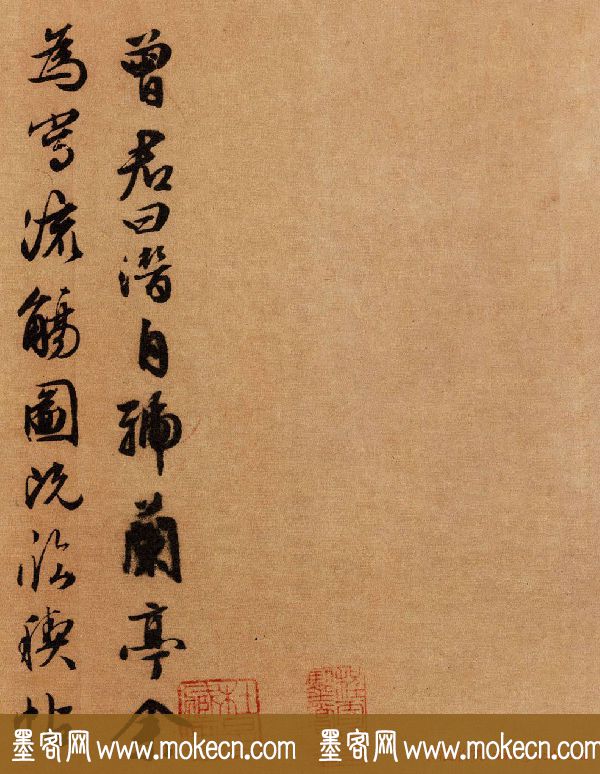 曾君曰潛自號蘭亭余
為寫流觴圖既臨禊帖
墨客网 www.mokecn.com 墨客网 www.mokecn.com